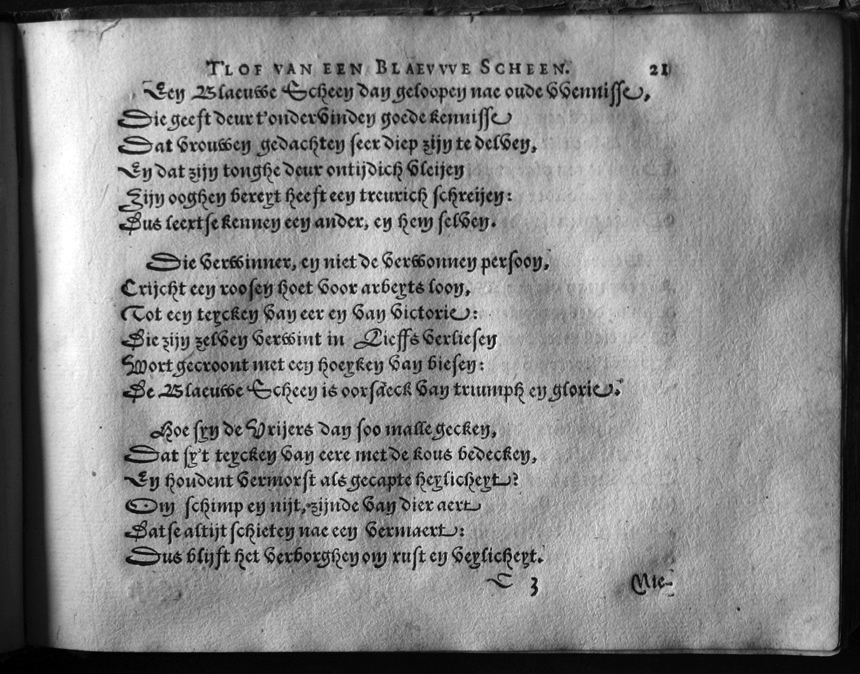 TLOF VAN EEN BLAEVWE SCHEEN. 21
Een Blaeuwe Scheen dan geloopen nae oude VVennisse,
Die geeft deur t'ondervinden goede kennisse
Dat vrouwen gedachten seer diep zijn te delven,
En dat zijn tonghe deur ontijdich vleijen
Zijn ooghen bereyt heeft een treurich schreijen:
Dus leertse kennen een ander, en hem selven.
Die verwinner, en niet de verwonnen persoon,
Crijcht een roosen hoet voor arbeyts loon,
Tot een teycken van eer en van victorie:
Die zijn zelven verwint in Lieffs verliesen
Wort gecroont met een hoeyken van biesen:
De Blaeuwe Scheen is oorsaeck van triumph en glorie.
Hoe syn de Vrijers dan soo malle gecken,
Dat sy't teycken van eere met de kous bedecken,
En houdent vermorst als gecapte heylicheyt?
Om schimp en nijt, zijnde van dier aert
Datse altijt schieten nae een vermaert:
Dus blijft het verborghen om rust en veylicheyt.
C 3 Nie-